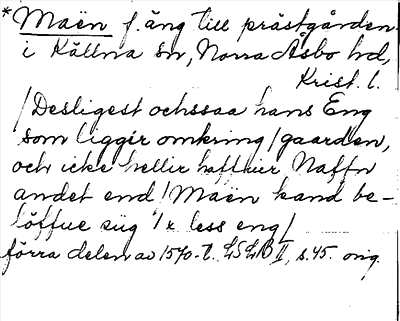 *Maën f. äng till prästgården
i Källna sn, Norra Åsbo hd,
Krist. l.
/Desligest ochssaa hans Eng
som liggir omkring/gaarden,
och icke hellir haffuer Naffn
andet end/Maën kand be-
löffue sig 1 x less eng/
förra delen av 1570-t. LSLB II, s. 45. orig.